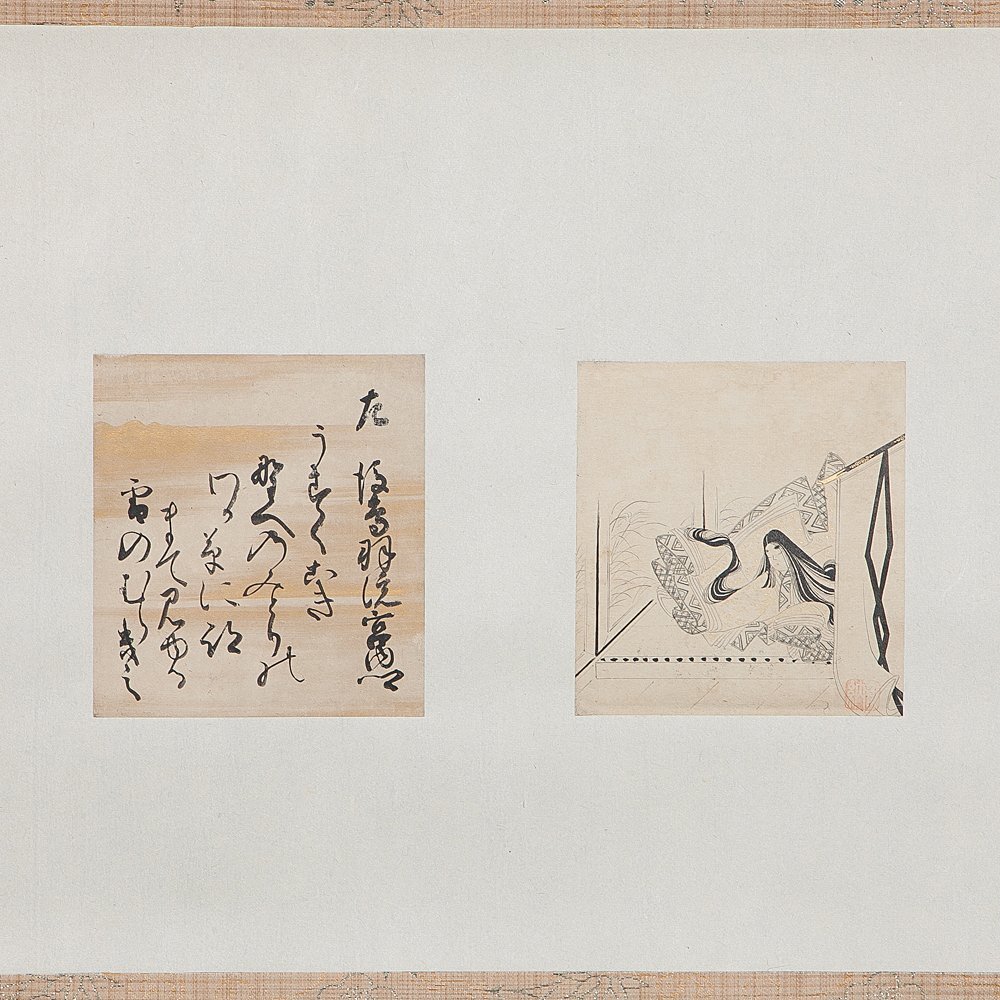 左　後鳥羽院宮内卿
うすくこき
野へのみとりの
わか草に跡
まて見ゆる
雪のむらきえ